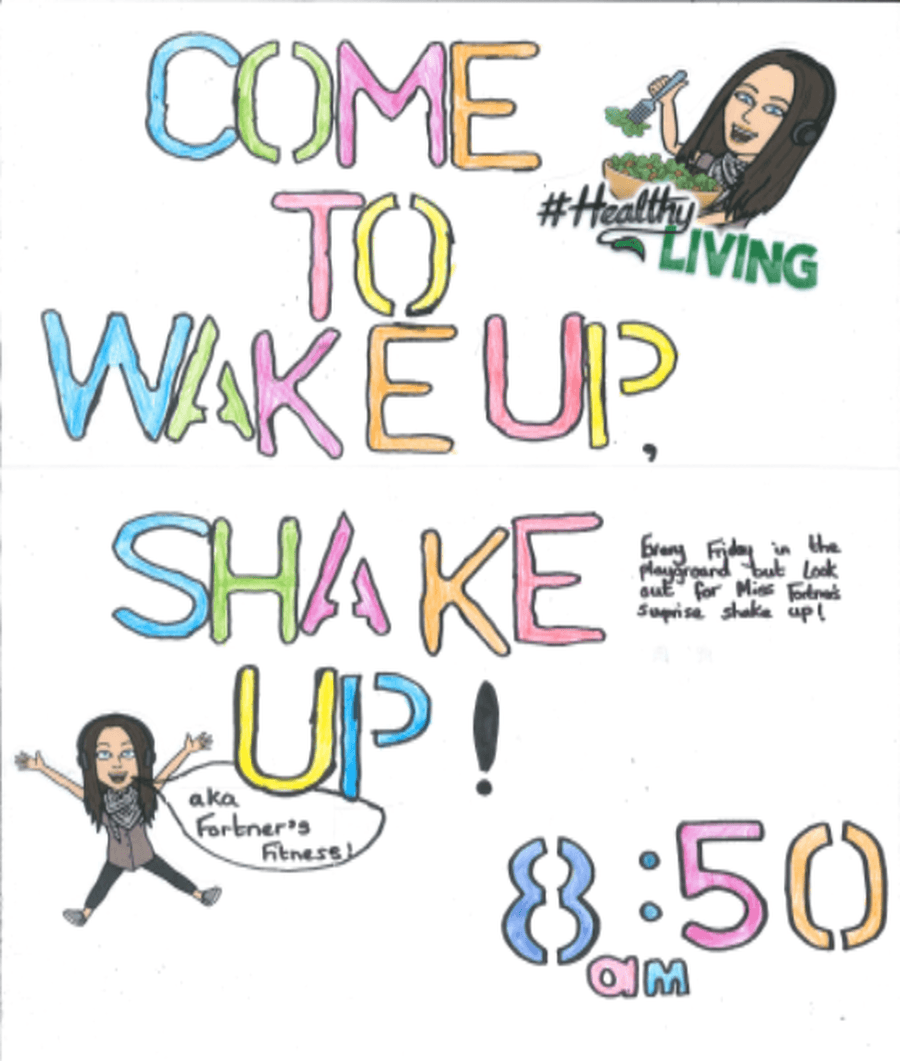 COME
#Healthy
LIVING
TO
WAKE UP,
SHAKE
Every Friday in the
playground but Look
out for Miss Fortner's
surprise shake up!
UP!
aka
Fortner's
Fitness!
8:50
am